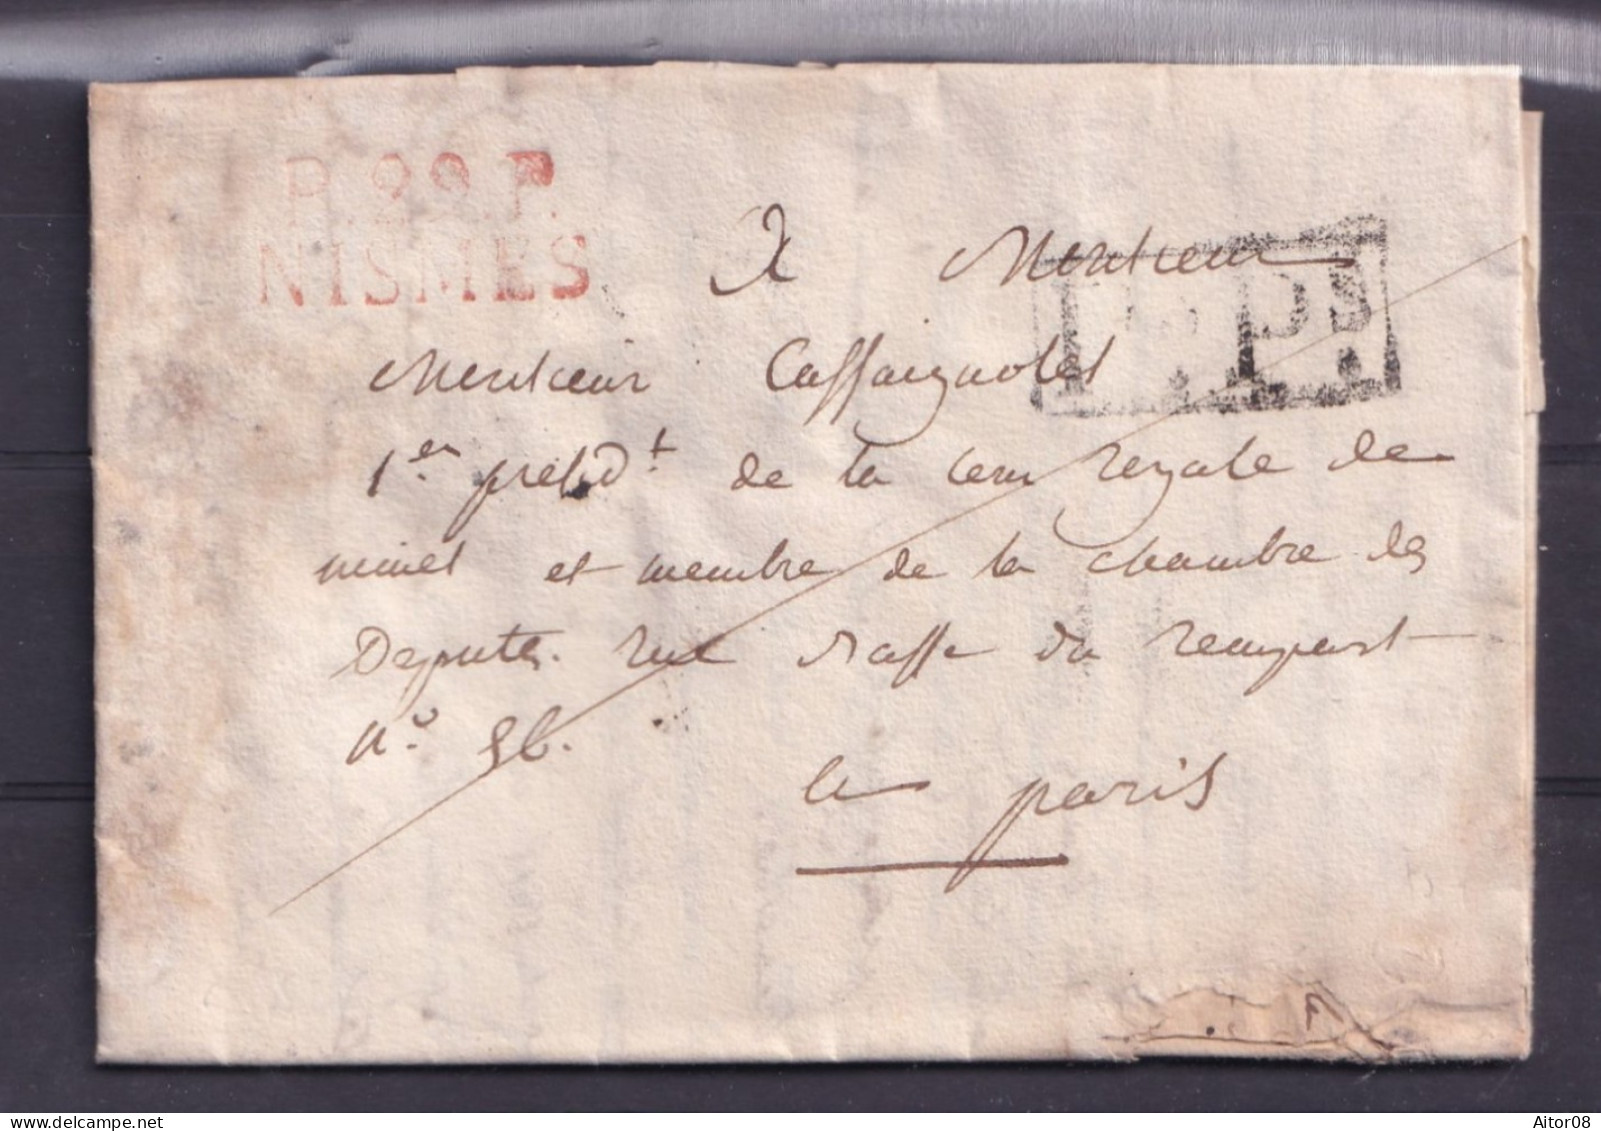 P.29.P.
NISMES
A Monsieur
P.P.
Monsieur Cassaignoles
1er présidt de la cour royale de
nimes et membre de la chambre des
Deputés. rue basse du rempart
no 56.
a paris
Aitor08